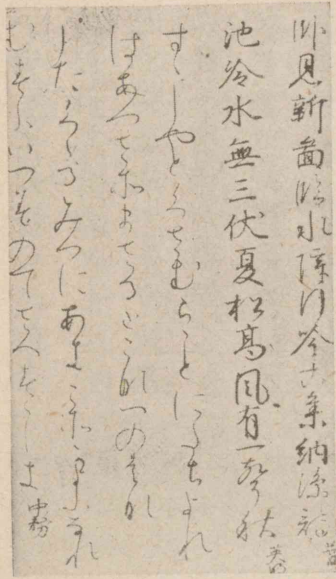 臥見新啚臨水障行吟古集納涼詩
池冷水無三伏夏松高風有一聲秋 英明
すゝしやとくさむらことにたちよれ
はあつさそまさるとこ那つのはな
したくゝるみつにあきこそかよふなれ
むすふいつみのてさへすゝしき 中務